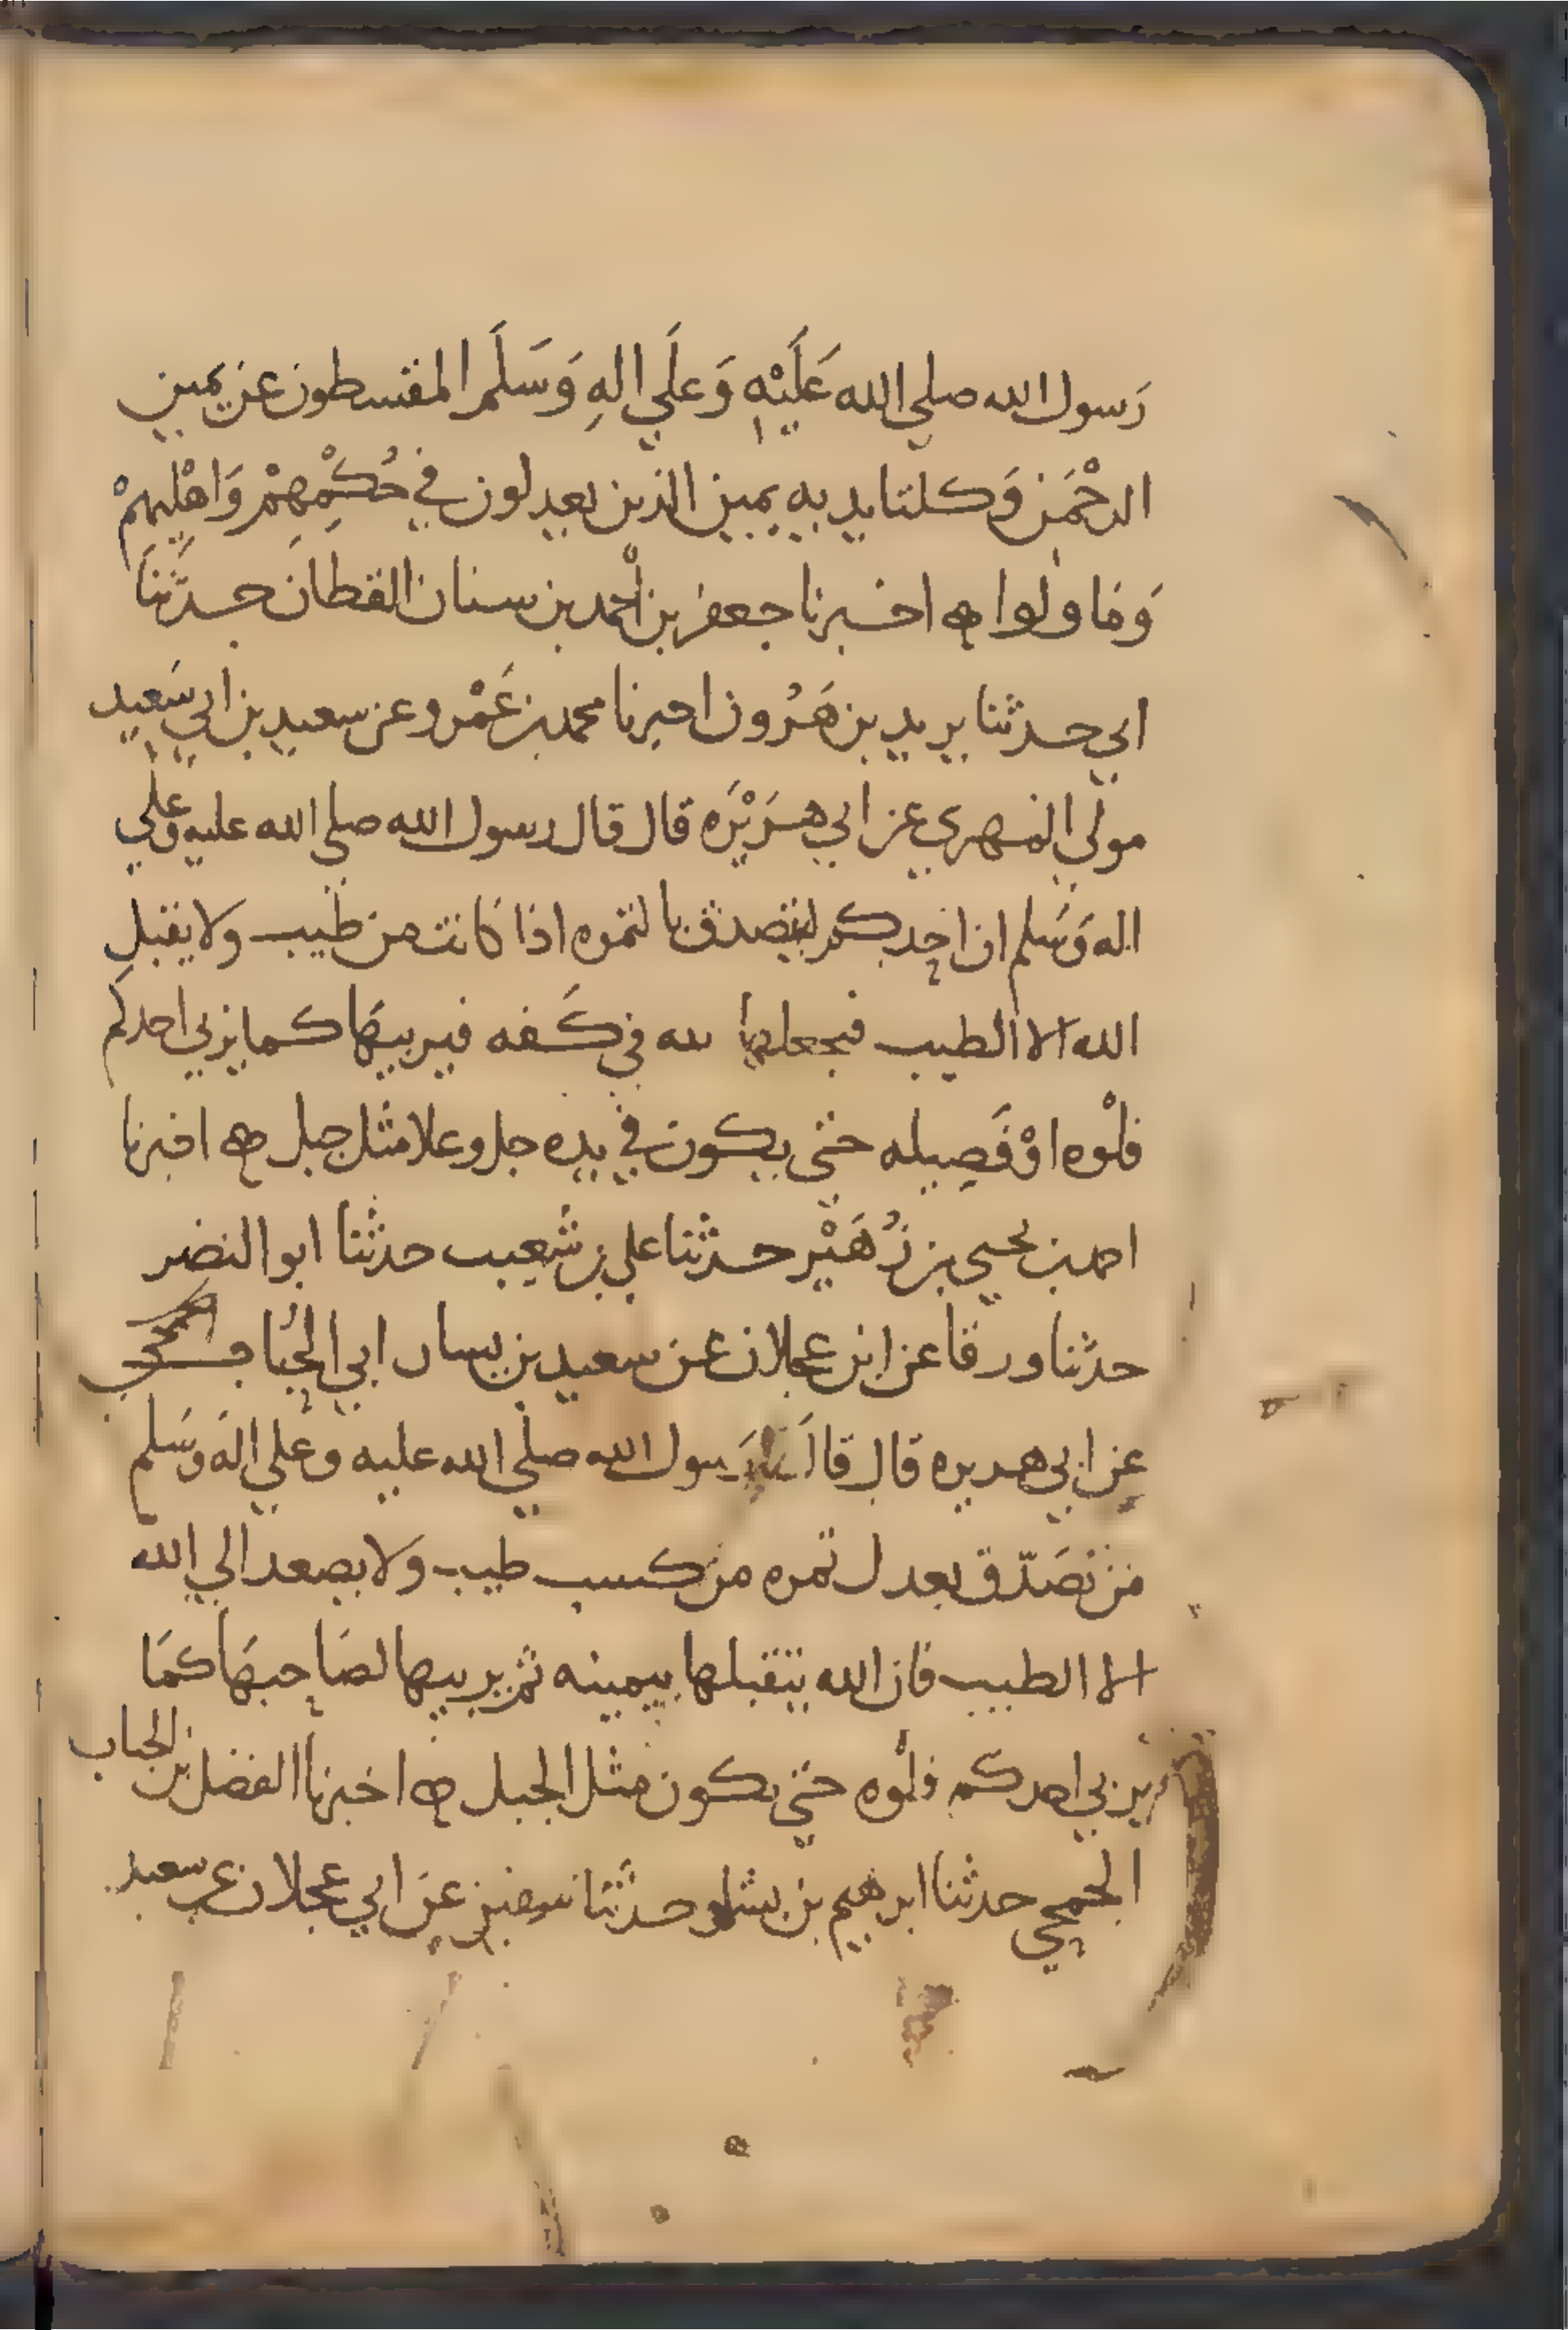 رَسول الله صلي الله عَلَيْهِ وَعلَي الهِ وَسَلَّم المقسطون عن يمين
الرحْمَن وَكلتا يديه يمين الذين يعدلون في حُكْمِهِمْ وَاهْلِيهِمْ
وَما ولوا ه اخبرنا جعفر بن احْمد بن سنان القطان حدثنا
ابي حدثنا يزيد بن هَرُون اخبرنا محمد بن عَمْرو عن سعيد بن ابي سَعيد
مولي المهري عن ابي هرَيْرَه قال قال رسول الله صلي الله عليه وعلي
اله وَسَلم ان احدكم ليتصدق بالتمره اذا كانت من طيب ولا يقبل
الله الا الطيب فيجعلها الله في كَفه فيربيهَا كما يربي احدكم
فلْوه اوْ فَصِيله حتي يكون في يده جل وعلا مثل جبل ه اخبرنا
احمد بن يحيي بن زُهَيْر حدثنا علي بن شُعيب حدثنا ابو النضر
حدثنا ورقا عن ابن عجلان عن سعيد بن يسار ابي الحُباب
عن ابي هريره قال قال رَسول الله صلي الله عليه وعلي اله وَسَلم
من تصَدّق بعدل تمره من كسب طيب ولا يصعد الي الله
الا الطيب فان الله يتقبلها بيمينه ثم يربيها لصَاحبهَا كمَا
يربي احدكم فلْوه حتي يكون مثل الجبل ه اخبرنا الفضل بن الحباب
الجمحي حدثنا ابرهيم بن بشار حدثنا سفين عن ابي عجلان عن سعيد